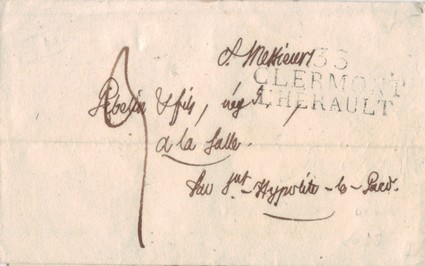 A Messieurs
33
CLERMONT
L'HERAULT
Abelin & fils, négts,
a la Salle.
Par St - Hypolite - le -
3